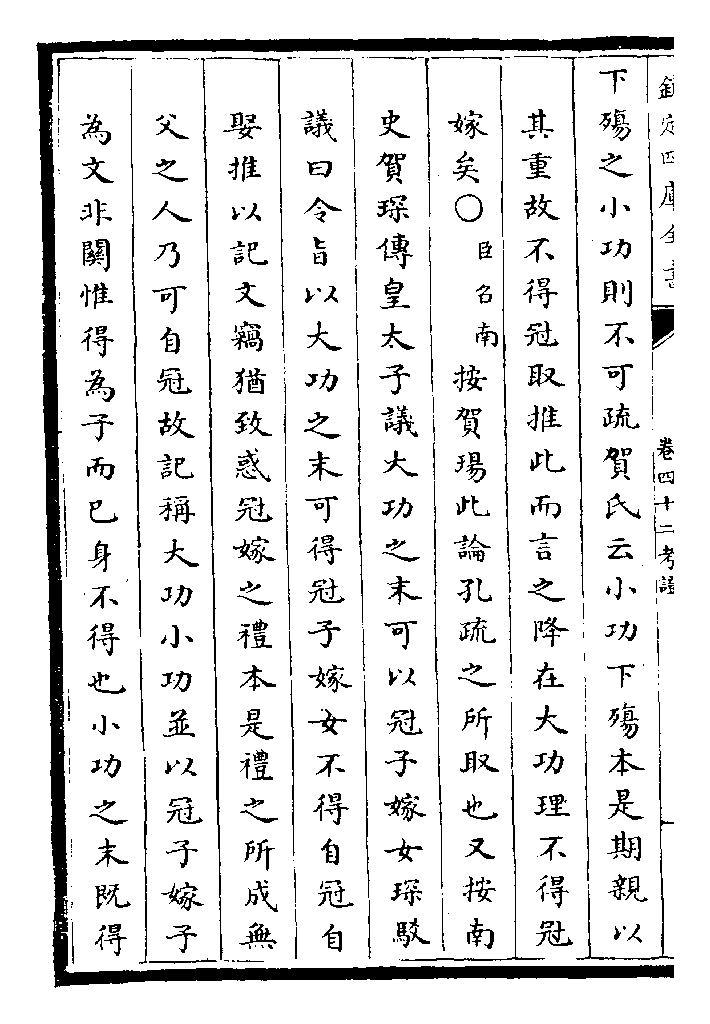 欽定四庫全書
卷四十二考證
下殤之小功則不可疏賀氏云小功下殤本是期親以
其重故不得冠取推此而言之降在大功理不得冠
嫁矣○臣召南按賀瑒此論孔疏之所取也又按南
史賀琛傳皇太子議大功之末可以冠子嫁女琛駁
議曰令旨以大功之末可得冠子嫁女不得自冠自
娶推以記文竊猶致惑冠嫁之禮本是禮之所成無
父之人乃可自冠故記稱大功小功並以冠子嫁子
為文非關惟得為子而已身不得也小功之末既得